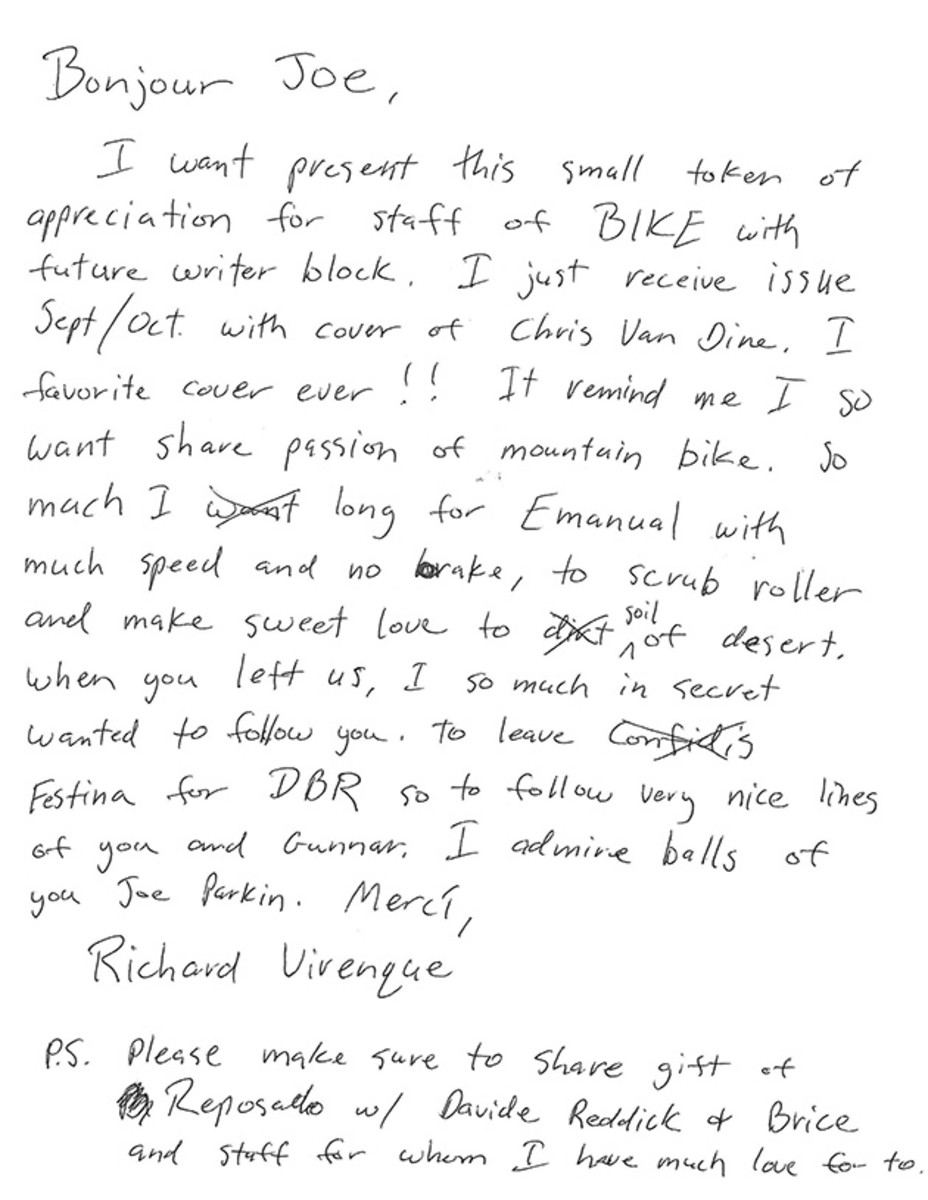 Bonjour Joe,
I want present this small token of
appreciation for staff of BIKE with
future writer block. I just receive issue
Sept/Oct. with cover of Chris Van Dine. I
favorite cover ever !! It remind me I so
want share passion of mountain bike. So
much I want long for Emanual with
much speed and no brake, to scrub roller
and make sweet love to dirt soil of desert.
when you left us, I so much in secret
wanted to follow you. To leave Confidis
Festina for DBR so to follow very nice lines
of you and Gunnar. I admire balls of
you Joe Parkin. Merci,
Richard Virenque
P.S. Please make sure to share gift of
Reposado w/ Davide Reddick & Brice
and staff for whom I have much love for to.